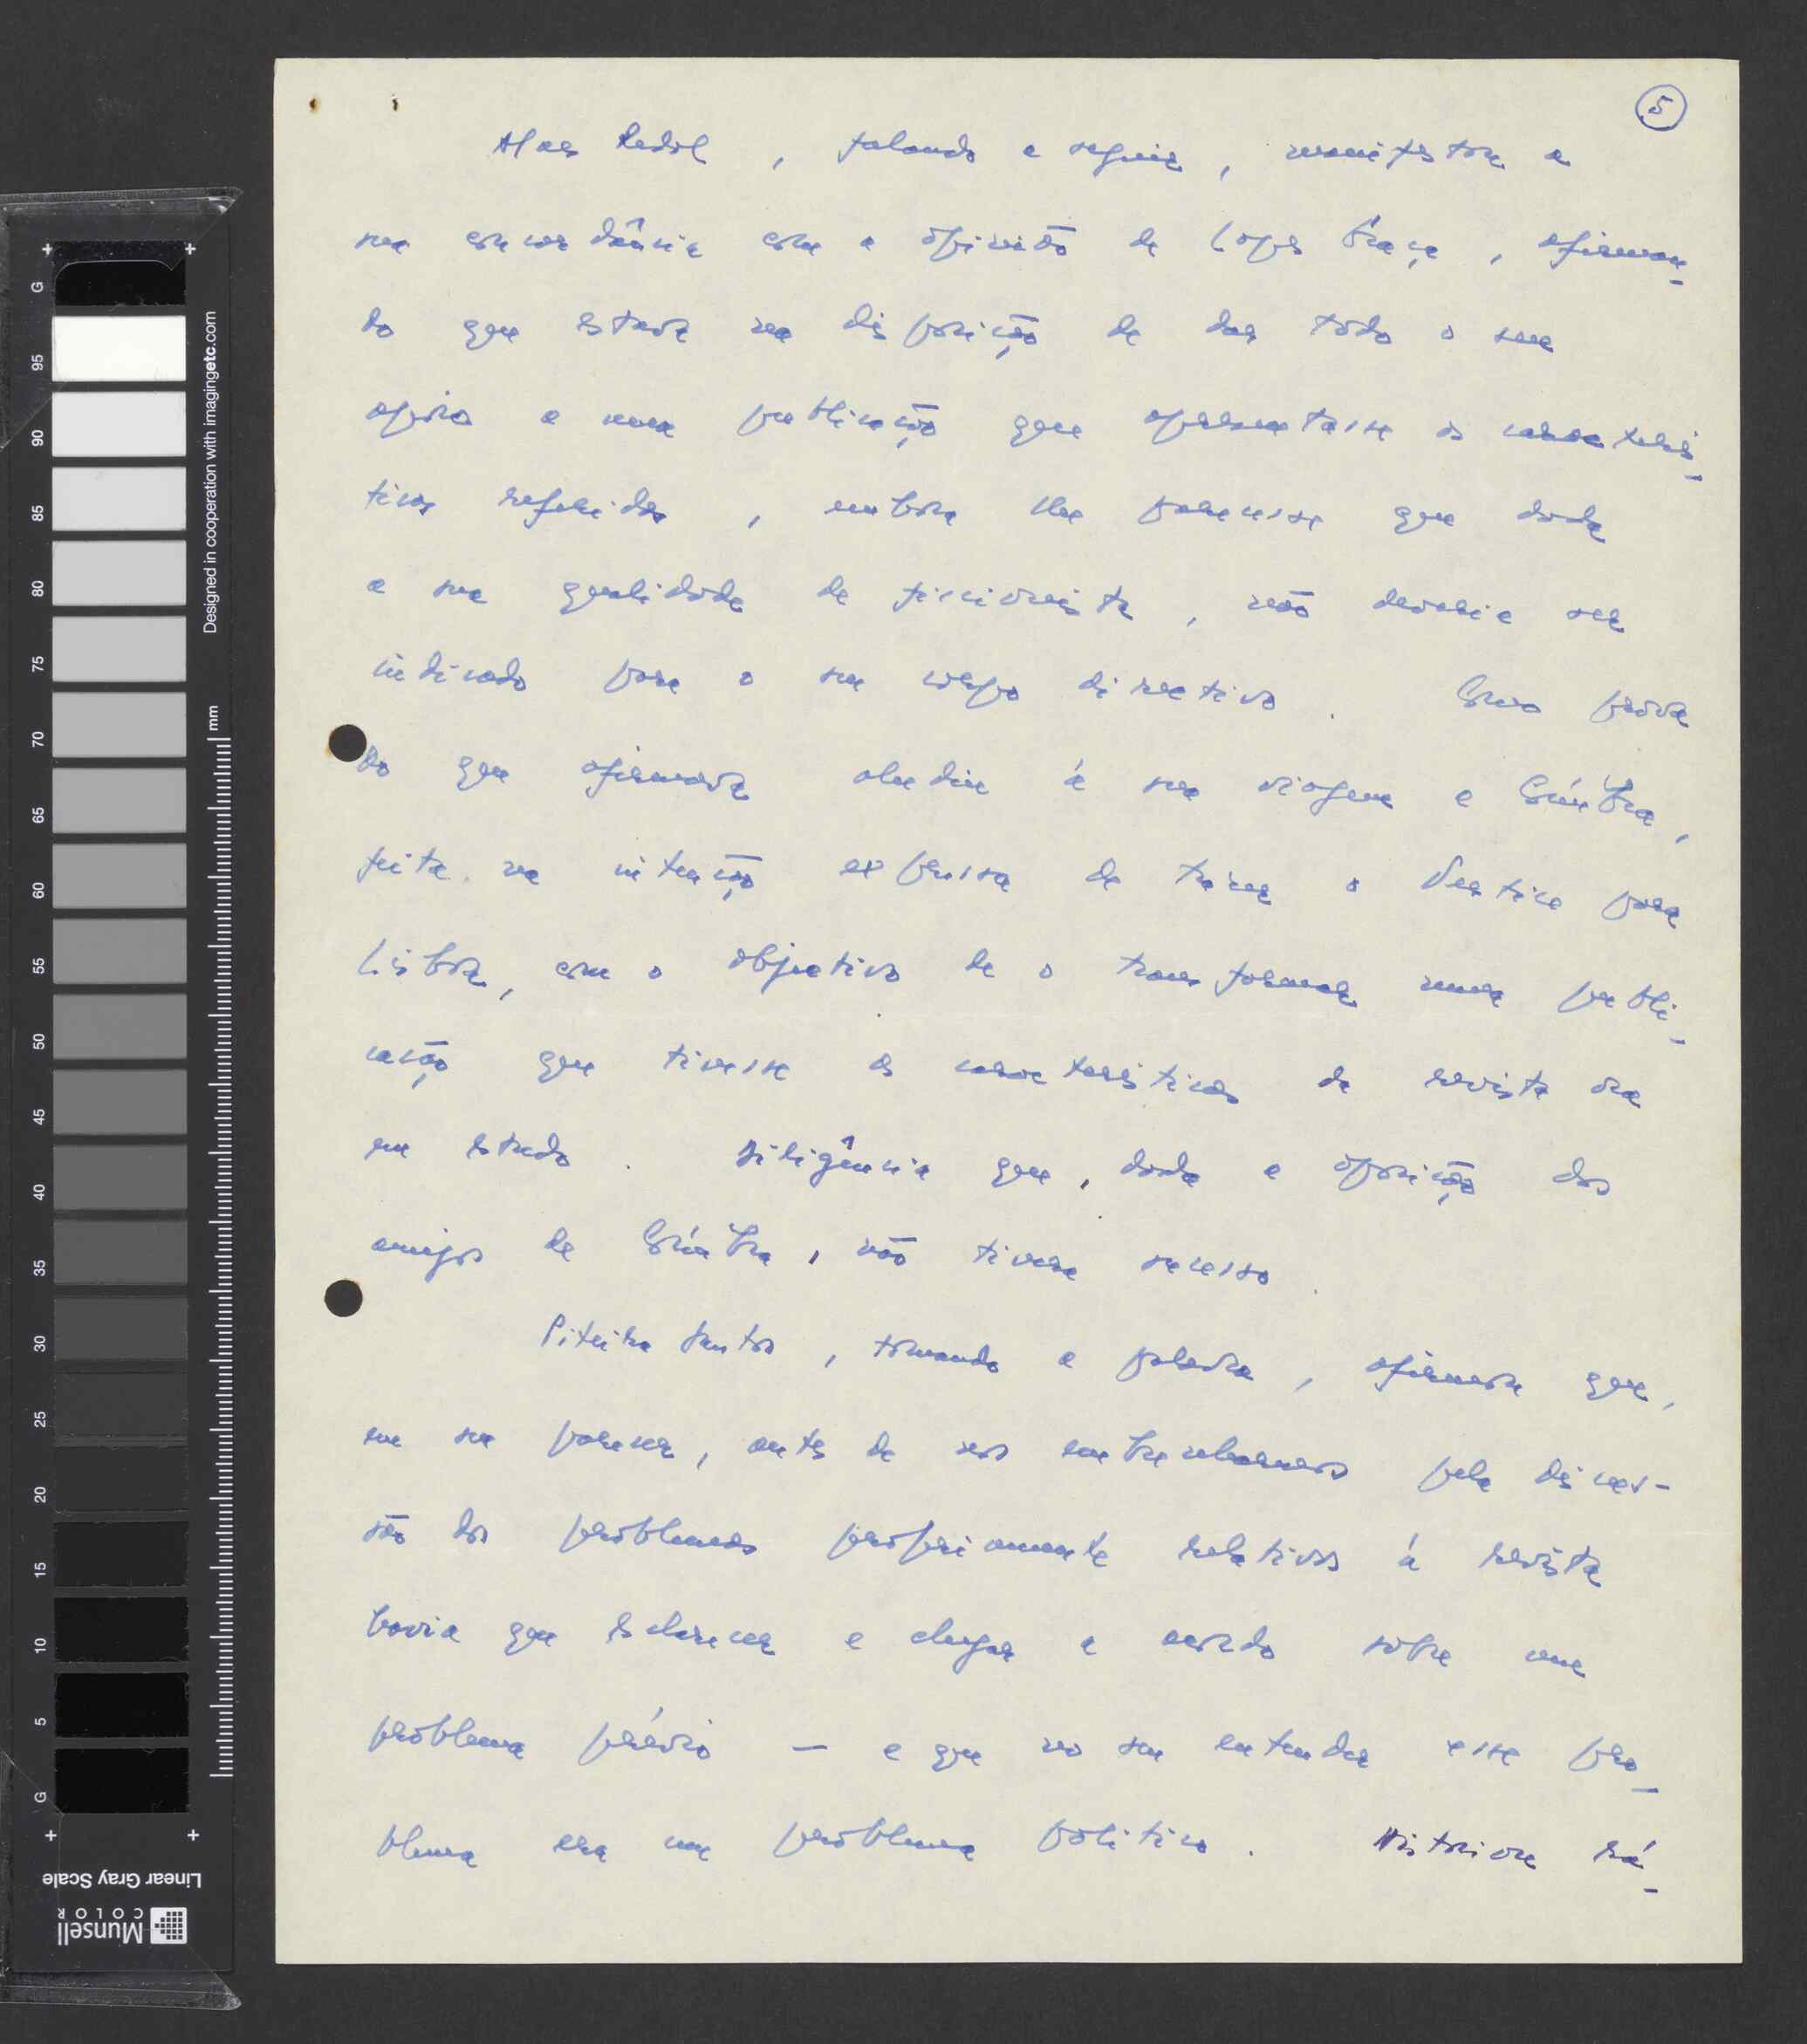 5
Alves Redol, falando a seguir, manifestou a
sua concordância com a opinião de Lopes Graça, afirman-
do que estava na disposição de dar todo o seu
apoio a uma publicação que apresentasse as caracterís-
ticas referidas, embora lhe parecesse que dada
a sua qualidade de ficcionista, não deveria ser
indicado para o seu corpo directivo. Como prova
do que afirmava aludiu à sua viagem a Coimbra,
feita na intenção expressa de trazer o Vertice para
Lisboa, com o objectivo de o transformar numa publi-
cação que tivesse as caracteristicas da revista ora
em estudo. Diligência que, dada a oposição dos
amigos de Coimbra, não tivera sucesso.
Piteira Santos, tomando a palavra, afirmara que,
em seu parecer, antes de nos embrenharmos pela discus-
são dos problemas propriamente relativos à revista
havia que esclarecer e chegar a acordo sobre um
problema prévio — e que no seu entender esse pro-
blema era um problema politico. Historiou rá-
G
95
90
85
80
75
70
65
60
55
50
45
40
35
30
25
20
15
10
5
G
mm
Designed in cooperation with imagingetc.com
Linear Gray Scale
Munsell
COLOR